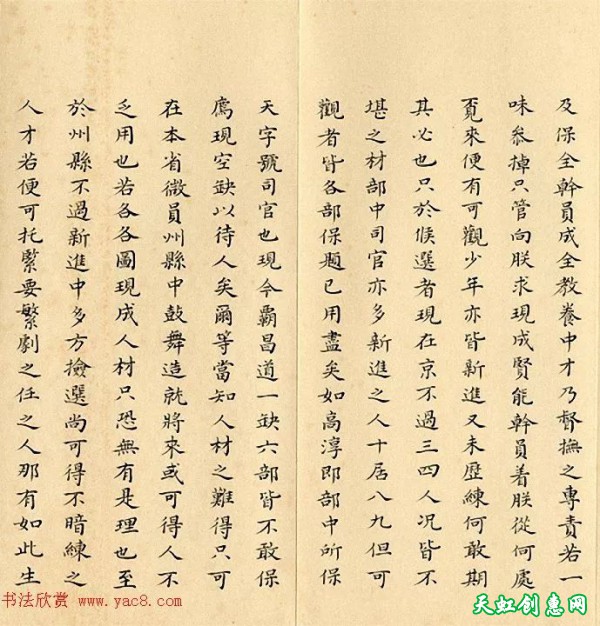 及保全幹員成全教養中才乃督撫之專責若一
味參掉只管向朕求現成賢能幹員着朕從何處
覓來便有可觀少年亦皆新進又未歷練何敢期
其必也只於候選者現在京不過三四人況皆不
堪之材部中司官亦多新進之人十居八九但可
觀者皆各部保題已用盡矣如高淳即部中所保
天字號司官也現今霸昌道一缺六部皆不敢保
薦現空缺以待人矣爾等當知人材之難得只可
在本省微員州縣中鼓舞造就將來或可得人不
乏用也若各各圖現成人材只恐無有是理也至
於州縣不過新進中多方撿選尚可得不暗練之
人才若便可托緊要繁劇之任之人那有如此生
书法欣赏 www.yac8.com
天虹创惠网